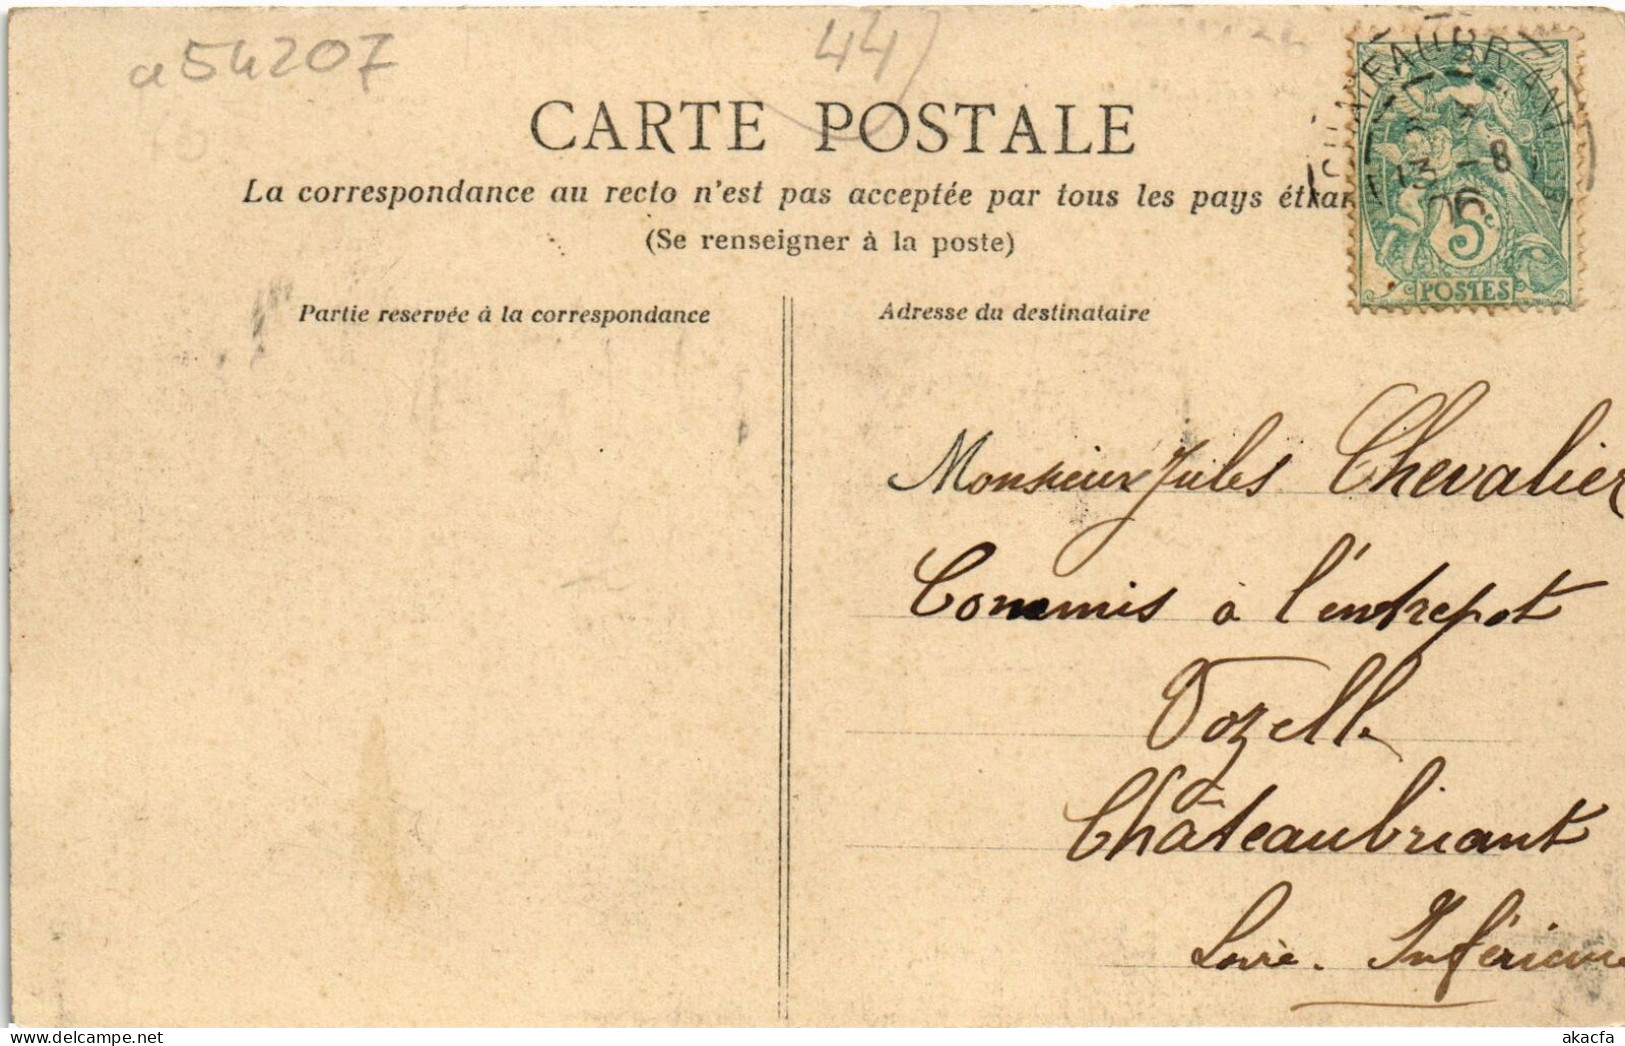 a54207
44
CARTE POSTALE
La correspondance au recto n'est pas acceptée par tous les pays étran
(Se renseigner à la poste)
Partie reservée à la correspondance
Adresse du destinataire
CHATEAUBRIANT
13 - 8
06
5c
POSTES
Monsieur Jules Chevalier
Commis à l'entrepot
Vozelle
Châteaubriant
Loire. Inférieure
akacfa